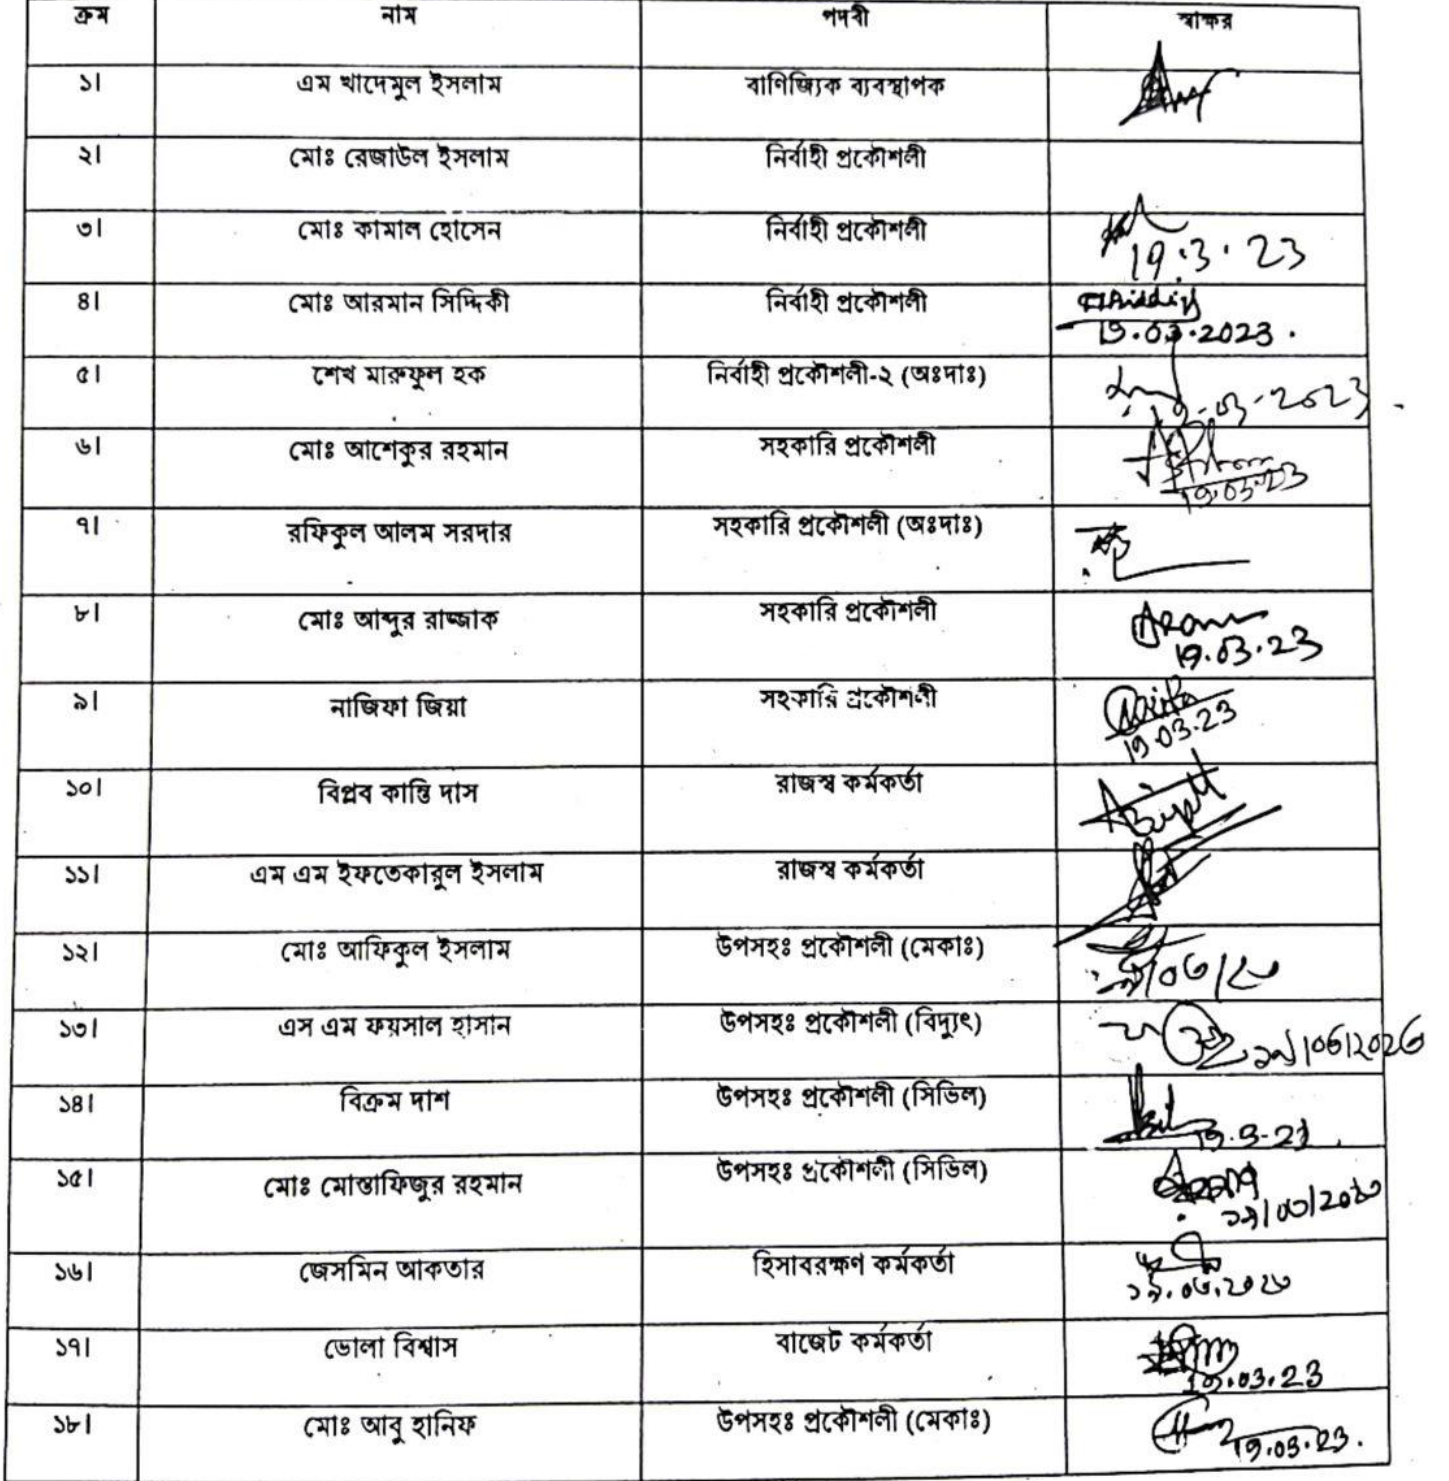 ক্রম নাম পদবী স্বাক্ষর
১। এম খাদেমুল ইসলাম বাণিজ্যিক ব্যবস্থাপক
২। মোঃ রেজাউল ইসলাম নির্বাহী প্রকৌশলী
৩। মোঃ কামাল হোসেন নির্বাহী প্রকৌশলী
19.3.23
৪। মোঃ আরমান সিদ্দিকী নির্বাহী প্রকৌশলী
19.03.2023.
৫। শেখ মারুফুল হক নির্বাহী প্রকৌশলী-২ (অঃদাঃ)
৬। মোঃ আশেকুর রহমান সহকারি প্রকৌশলী
19.03.23
৭। রফিকুল আলম সরদার সহকারি প্রকৌশলী (অঃদাঃ)
৮। মোঃ আব্দুর রাজ্জাক সহকারি প্রকৌশলী
19.03.23
৯। নাজিফা জিয়া সহকারি প্রকৌশলী
19.03.23
১০। বিপ্লব কান্তি দাস রাজস্ব কর্মকর্তা
১১। এম এম ইফতেকারুল ইসলাম রাজস্ব কর্মকর্তা
১২। মোঃ আফিকুল ইসলাম উপসহঃ প্রকৌশলী (মেকাঃ)
১৩। এস এম ফয়সাল হাসান উপসহঃ প্রকৌশলী (বিদ্যুৎ)
১৯/০৩/২০২৩
১৪। বিক্রম দাশ উপসহঃ প্রকৌশলী (সিভিল)
১৫। মোঃ মোস্তাফিজুর রহমান উপসহঃ প্রকৌশলী (সিভিল)
১৯/০৩/২০২৩
১৬। জেসমিন আকতার হিসাবরক্ষণ কর্মকর্তা
১৯.০৩.২০২৩
১৭। ভোলা বিশ্বাস বাজেট কর্মকর্তা
19.03.23
১৮। মোঃ আবু হানিফ উপসহঃ প্রকৌশলী (মেকাঃ)
19.03.23.